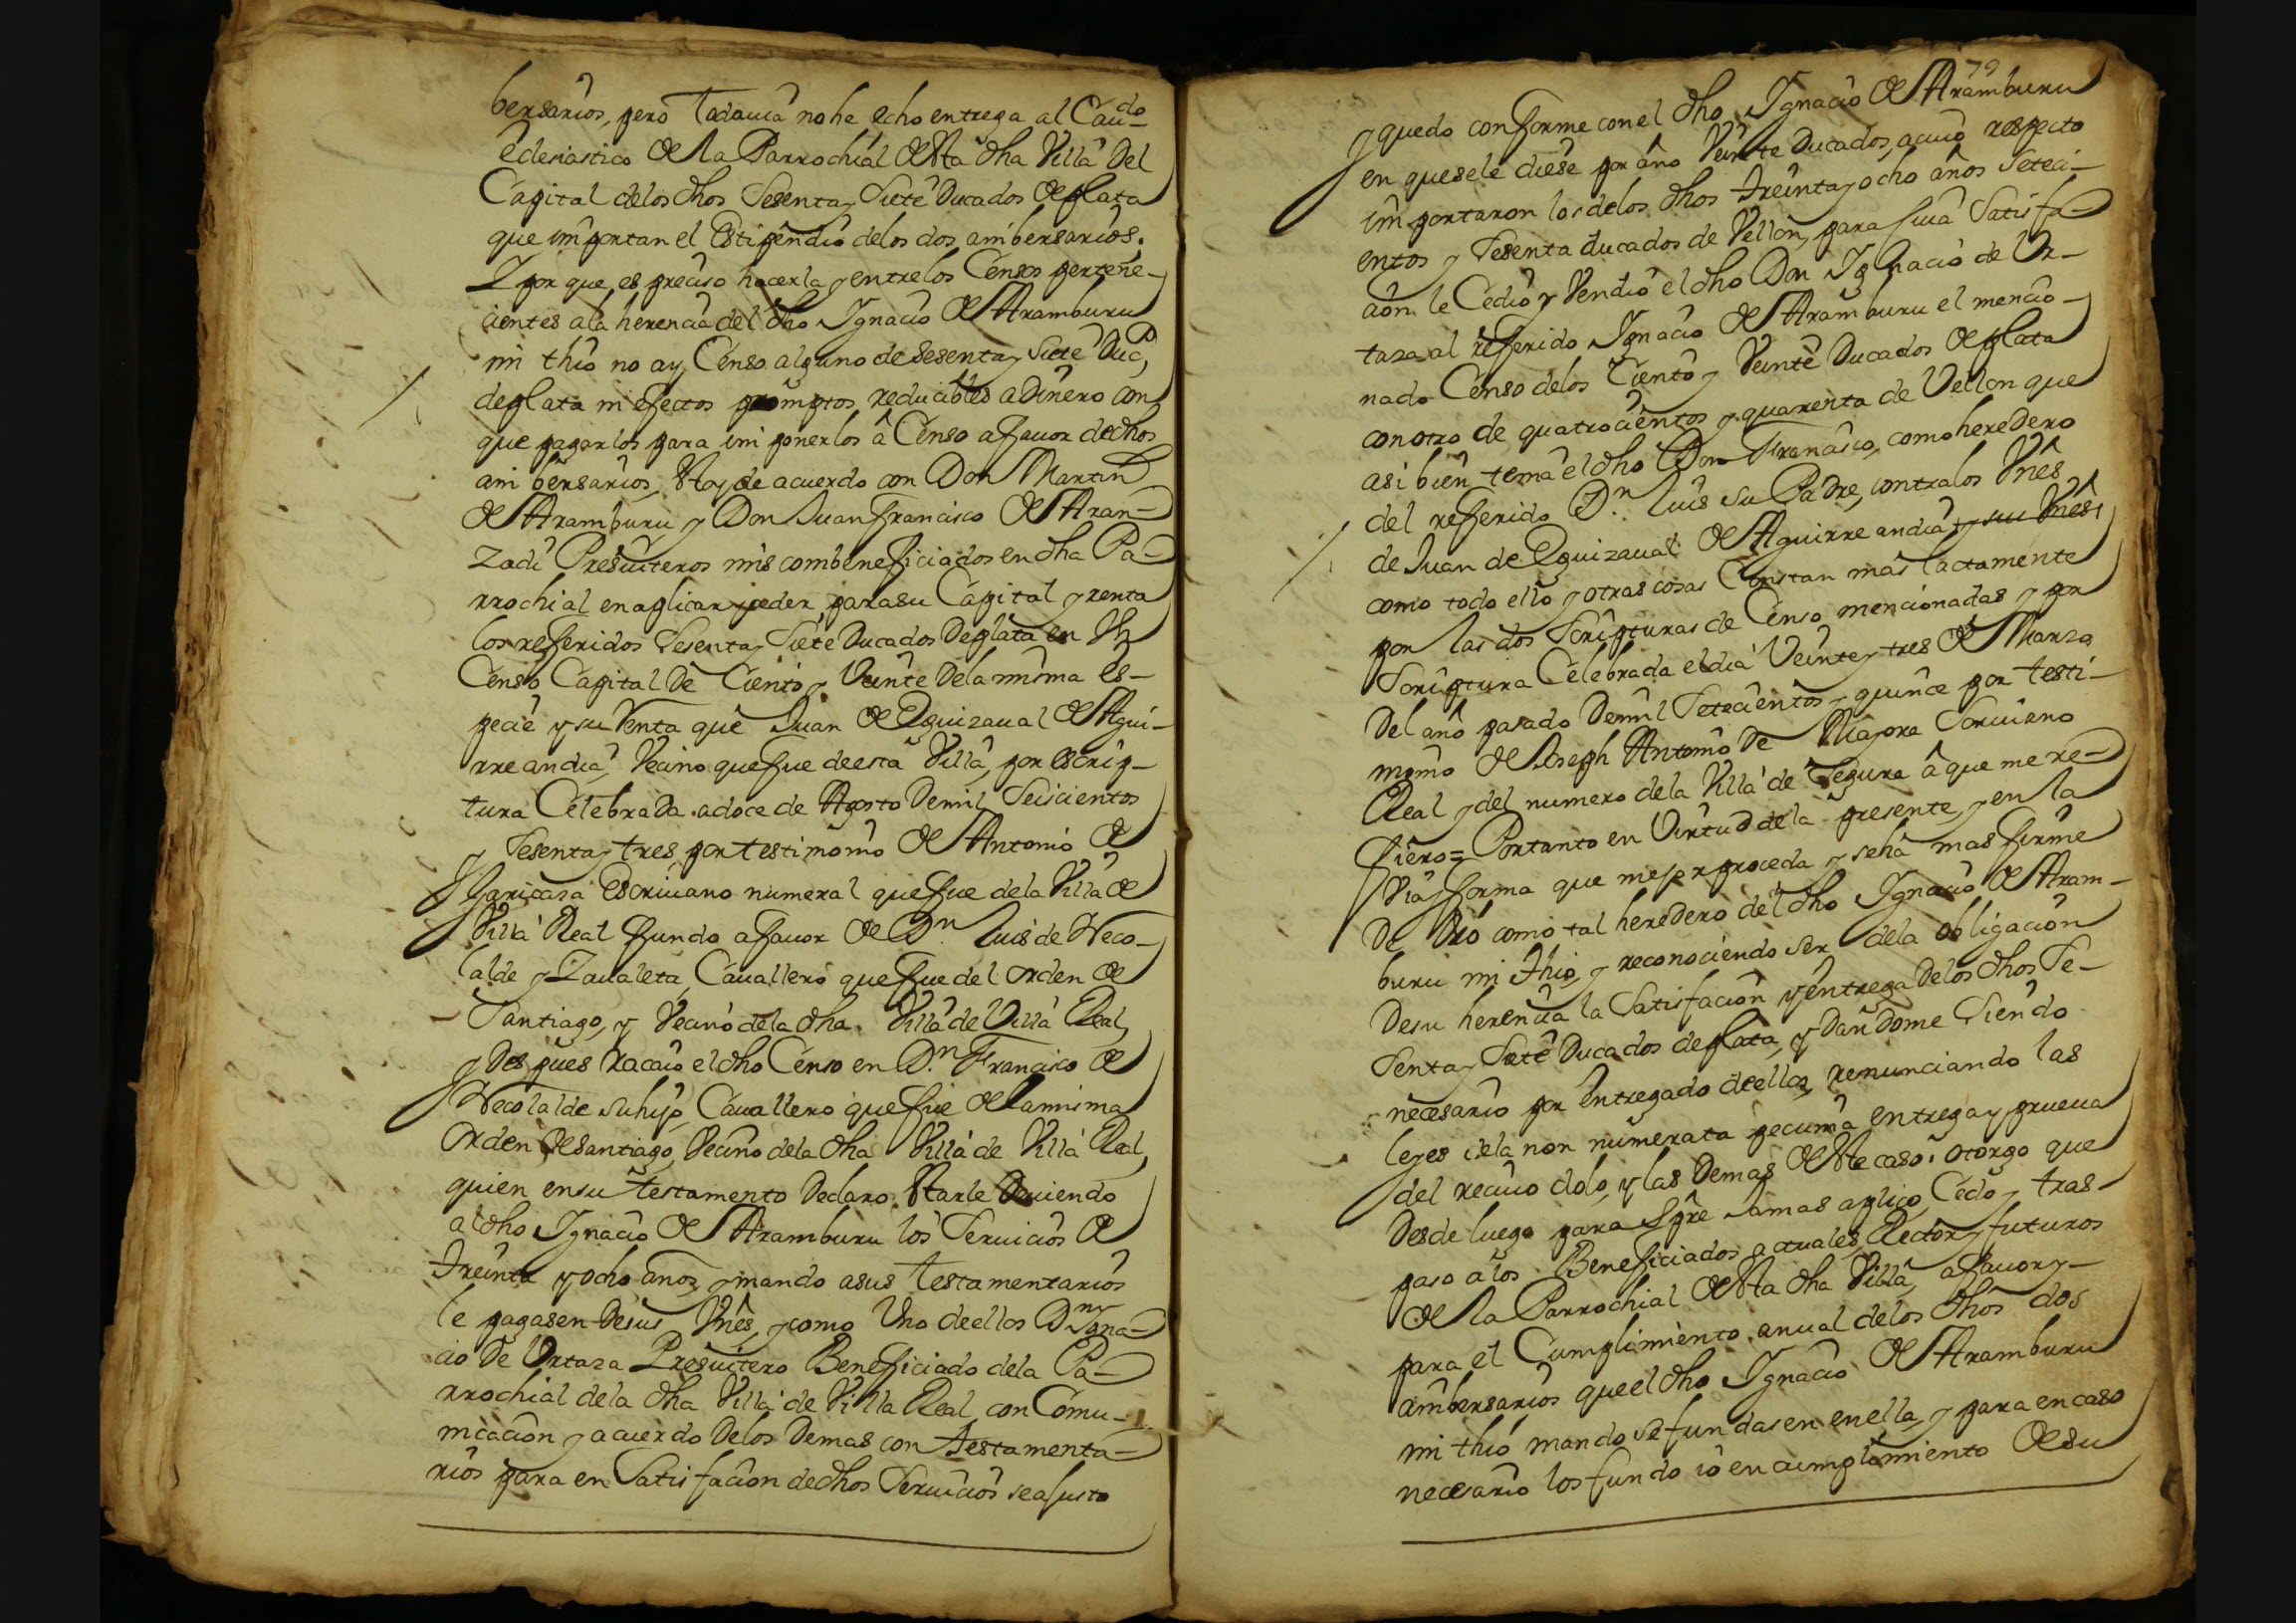 bersarios, pero Todauia no he echo entrega al Cau.do
Eclesiastico de la Parrochial de sta dha Villa Del
Capital delos dhos Sesenta y Siete Ducados de plata
que importan el Estipendio delos dos anibersarios.
Y por que es preciso hacerla y entrelos Censos pertene-
cientes ala herencia del dho Ignacio de Aramburu
mi thio no ay Censo alguno de Sesenta y Siete Duc.s
deplata ni efectos promptos reducibles a Dinero con
que pagarlos para imponerlos â Censo afauor de dhos
anibersarios, Stoy de acuerdo con Don Martin
de Aramburu y Don Juan francisco de Aran-
zadi Presuiteros mis combeneficiados en dha Pa-
rrochial en aplicar y ceder para su Capital y renta
los referidos Sesenta y Siete Ducados De plata en Vn
Censo Capital De Ciento y Veinte Dela misma es-
pecie y su Renta que Juan de Eguizaual de Agui-
rre andia, Vecino que fue de esta Villa, por escrip-
tura Celebrada a doce de Agosto Demil Seiscientos
y Sesenta y tres por testimonio de Antonio de
Garicaza Escriuano numeral que fue dela Villa de
Villa Real fundo afauor de D.n Luis de Neco-
lalde y Zaualeta, Cauallero que fue del orden de
Santiago, y Vecino dela dha Villa de Villa Real,
y Des pues Racaio el dho Censo en D.n Francisco de
Necolalde su hijo, Cauallero que fue de la misma
Orden de Santiago, Vecino dela dha Villa de Villa Real,
quien en su Testamento Declaro Starle Deuiendo
al dho Ignacio de Aramburu los Seruicios de
treinta y ocho anos, y mando asus testamentarios
le pagasen Desus Vnês, y como Vno de ellos D.n Igna-
cio De Vrtaza Presuitero Beneficiado dela Pa-
rrochial dela dha Villa de Villa Real con Comu-
nicacion y acuerdo Delos Demas con testamenta-
rios para en Satisfacion de dhos Seruicios se ajusto
79
y quedo conforme con el dho Ignacio de Aramburu
en que sele diese por año Veinte Ducados, a cuio respecto
importaron los delos dhos treinta y ocho años Seteci-
entos y Sesenta ducados de Vellon, para cuia Satisfa-
cion le Cedio y Vendio el dho Don Ignacio de Vr-
taza al referido Ignacio de Aramburu el mencio-
nado Censo delos Ciento y Veinte Ducados de plata
con otro de quatrocientos y quarenta de Vellon que
asi bien tenia el dho Don Francisco, como heredero
del referido D.n Luis su Padre, contra los Vnês
de Juan de Eguizaual de Aguirre andia, y sus Vnês,
como todo ello y otras cosas Constan mas lactamente
por las dos Scripturas de Censo mencionadas y por
Scriptura Celebrada el dia Veinte y tres de Marzo
Del año pasado Demil Setecientos y quince por testi-
monio de Joseph Antonio De Mayora Scriuano
Real y del numero dela Villa de Segura â que me re-
fiero = Portanto en Virtud dela presente, y en la
Via y forma que mejor proceda y se ha mas firme
De Dro como tal heredero del dho Ignacio de Aram-
buru mi thio, y reconociendo ser dela obligacion
Desu herencia la Satisfacion y entrega Delos dhos Se-
senta y Siete Ducados deplata, y Dandome Siendo
necesario por entregado de ellos, renunciando las
leyes dela non numerata pecunia entrega y prueua
del reciuo dolo, y las Demas de ste caso: otorgo que
Desde luego para Spre Jamas aplico, Cedo y tras-
paso alos Beneficiados actuales, Rector y futuros
de la Parrochial de sta dha Villa, afauor y
para el Cumplimiento anual delos dhos dos
anibersarios que el dho Ignacio de Aramburu
mi thio mando se fundasen en ella, y para en caso
necesario los fundo io en cumplimiento de su